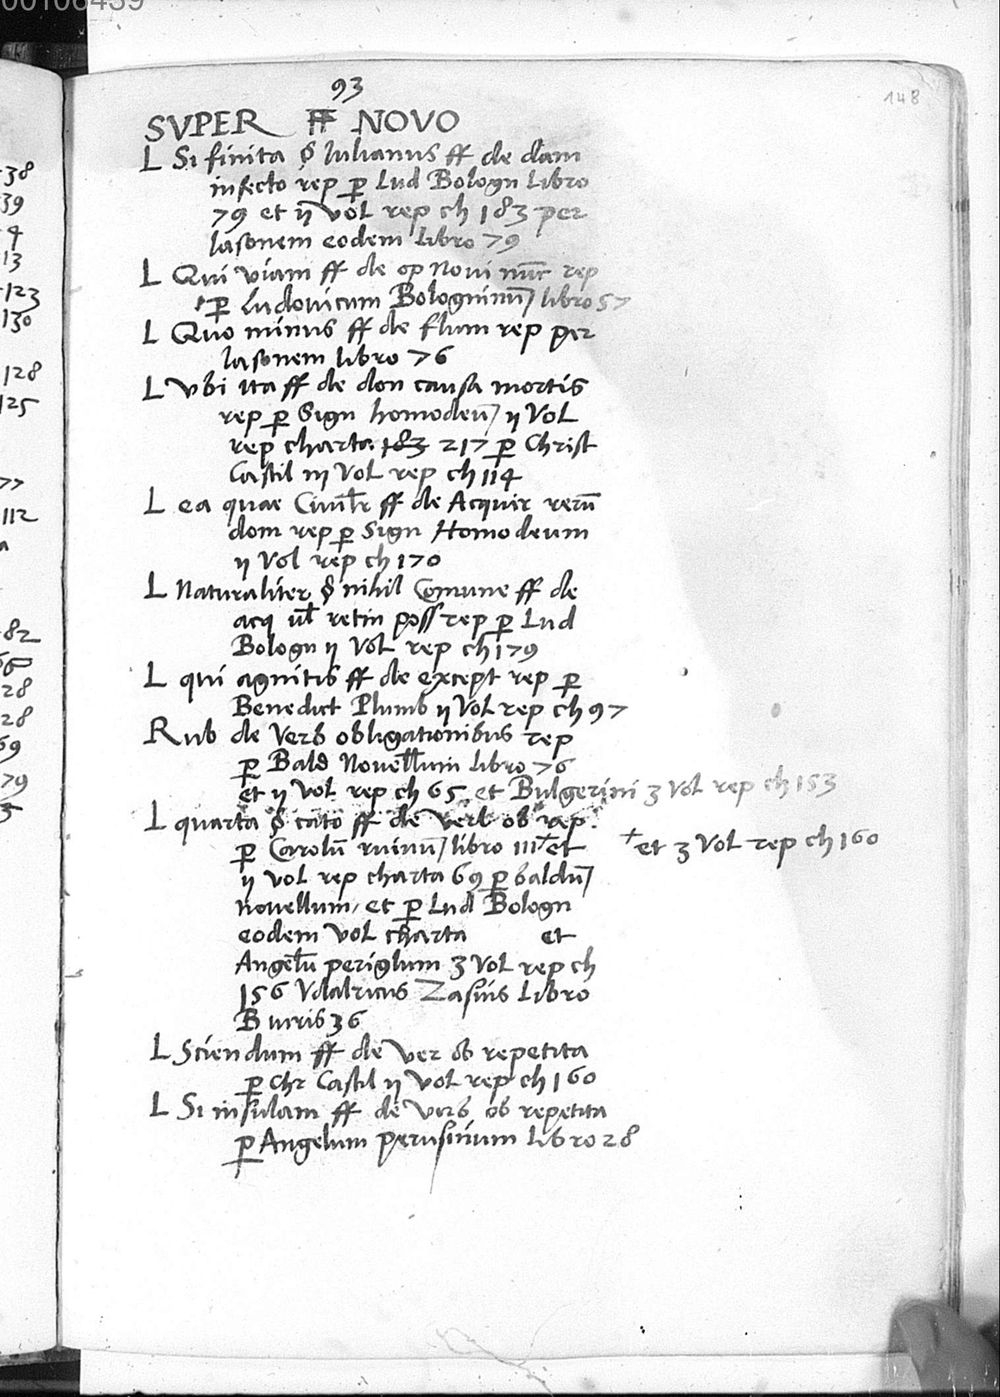 00106439
93
148
SVPER ff NOVO
L Si finita § Iulianus ff de dam
infecto rep p Lud Bologn Libro
79 et ij Vol rep ch 183 per
Iasonem eodem libro 79
L Qui viam ff de op Novi nunc rep
p Ludovicum Bologninum libro 57
L Quo minus ff de flum rep per
Iasonem libro 76
L Vbi ita ff de don causa mortis
rep p Sign homodeum ij Vol
rep charta 183 217 p Christ
Castil iij Vol rep ch 114
L ea quae Civilr ff de Acquir rerū
dom rep p Sign Homodeum
ij Vol rep ch 170
L Naturaliter § nihil Comune ff de
acq vl retin poss rep p Lud
Bologn ij Vol rep ch 179
L qui agnitis ff de except rep p
Benedict Plumb ij Vol rep ch 97
Rub de Verb obligationibus rep
p Bald Novellum libro 76
et ij vol rep ch 65 et Bulgerini 3 Vol rep ch 153
L quarta § cato ff de Verb ob rep
p Carolū ruinum libro iiij + et
+ et 3 Vol rep ch 160
ij vol rep charta 69 p baldum
novellum, et p Lud Bologn
eodem Vol charta et
Angelū periglum 3 Vol rep ch
156 Vdalricus Zasius Libro
B 36
L Sciendum ff de Ver ob repetita
p Chr Castil ij Vol rep ch 160
L Si insulam ff de Verb ob repetita
p Angelum perusinum libro 28
38
39
4
13
123
130
128
125
77
112
a
82
28
28
69
79